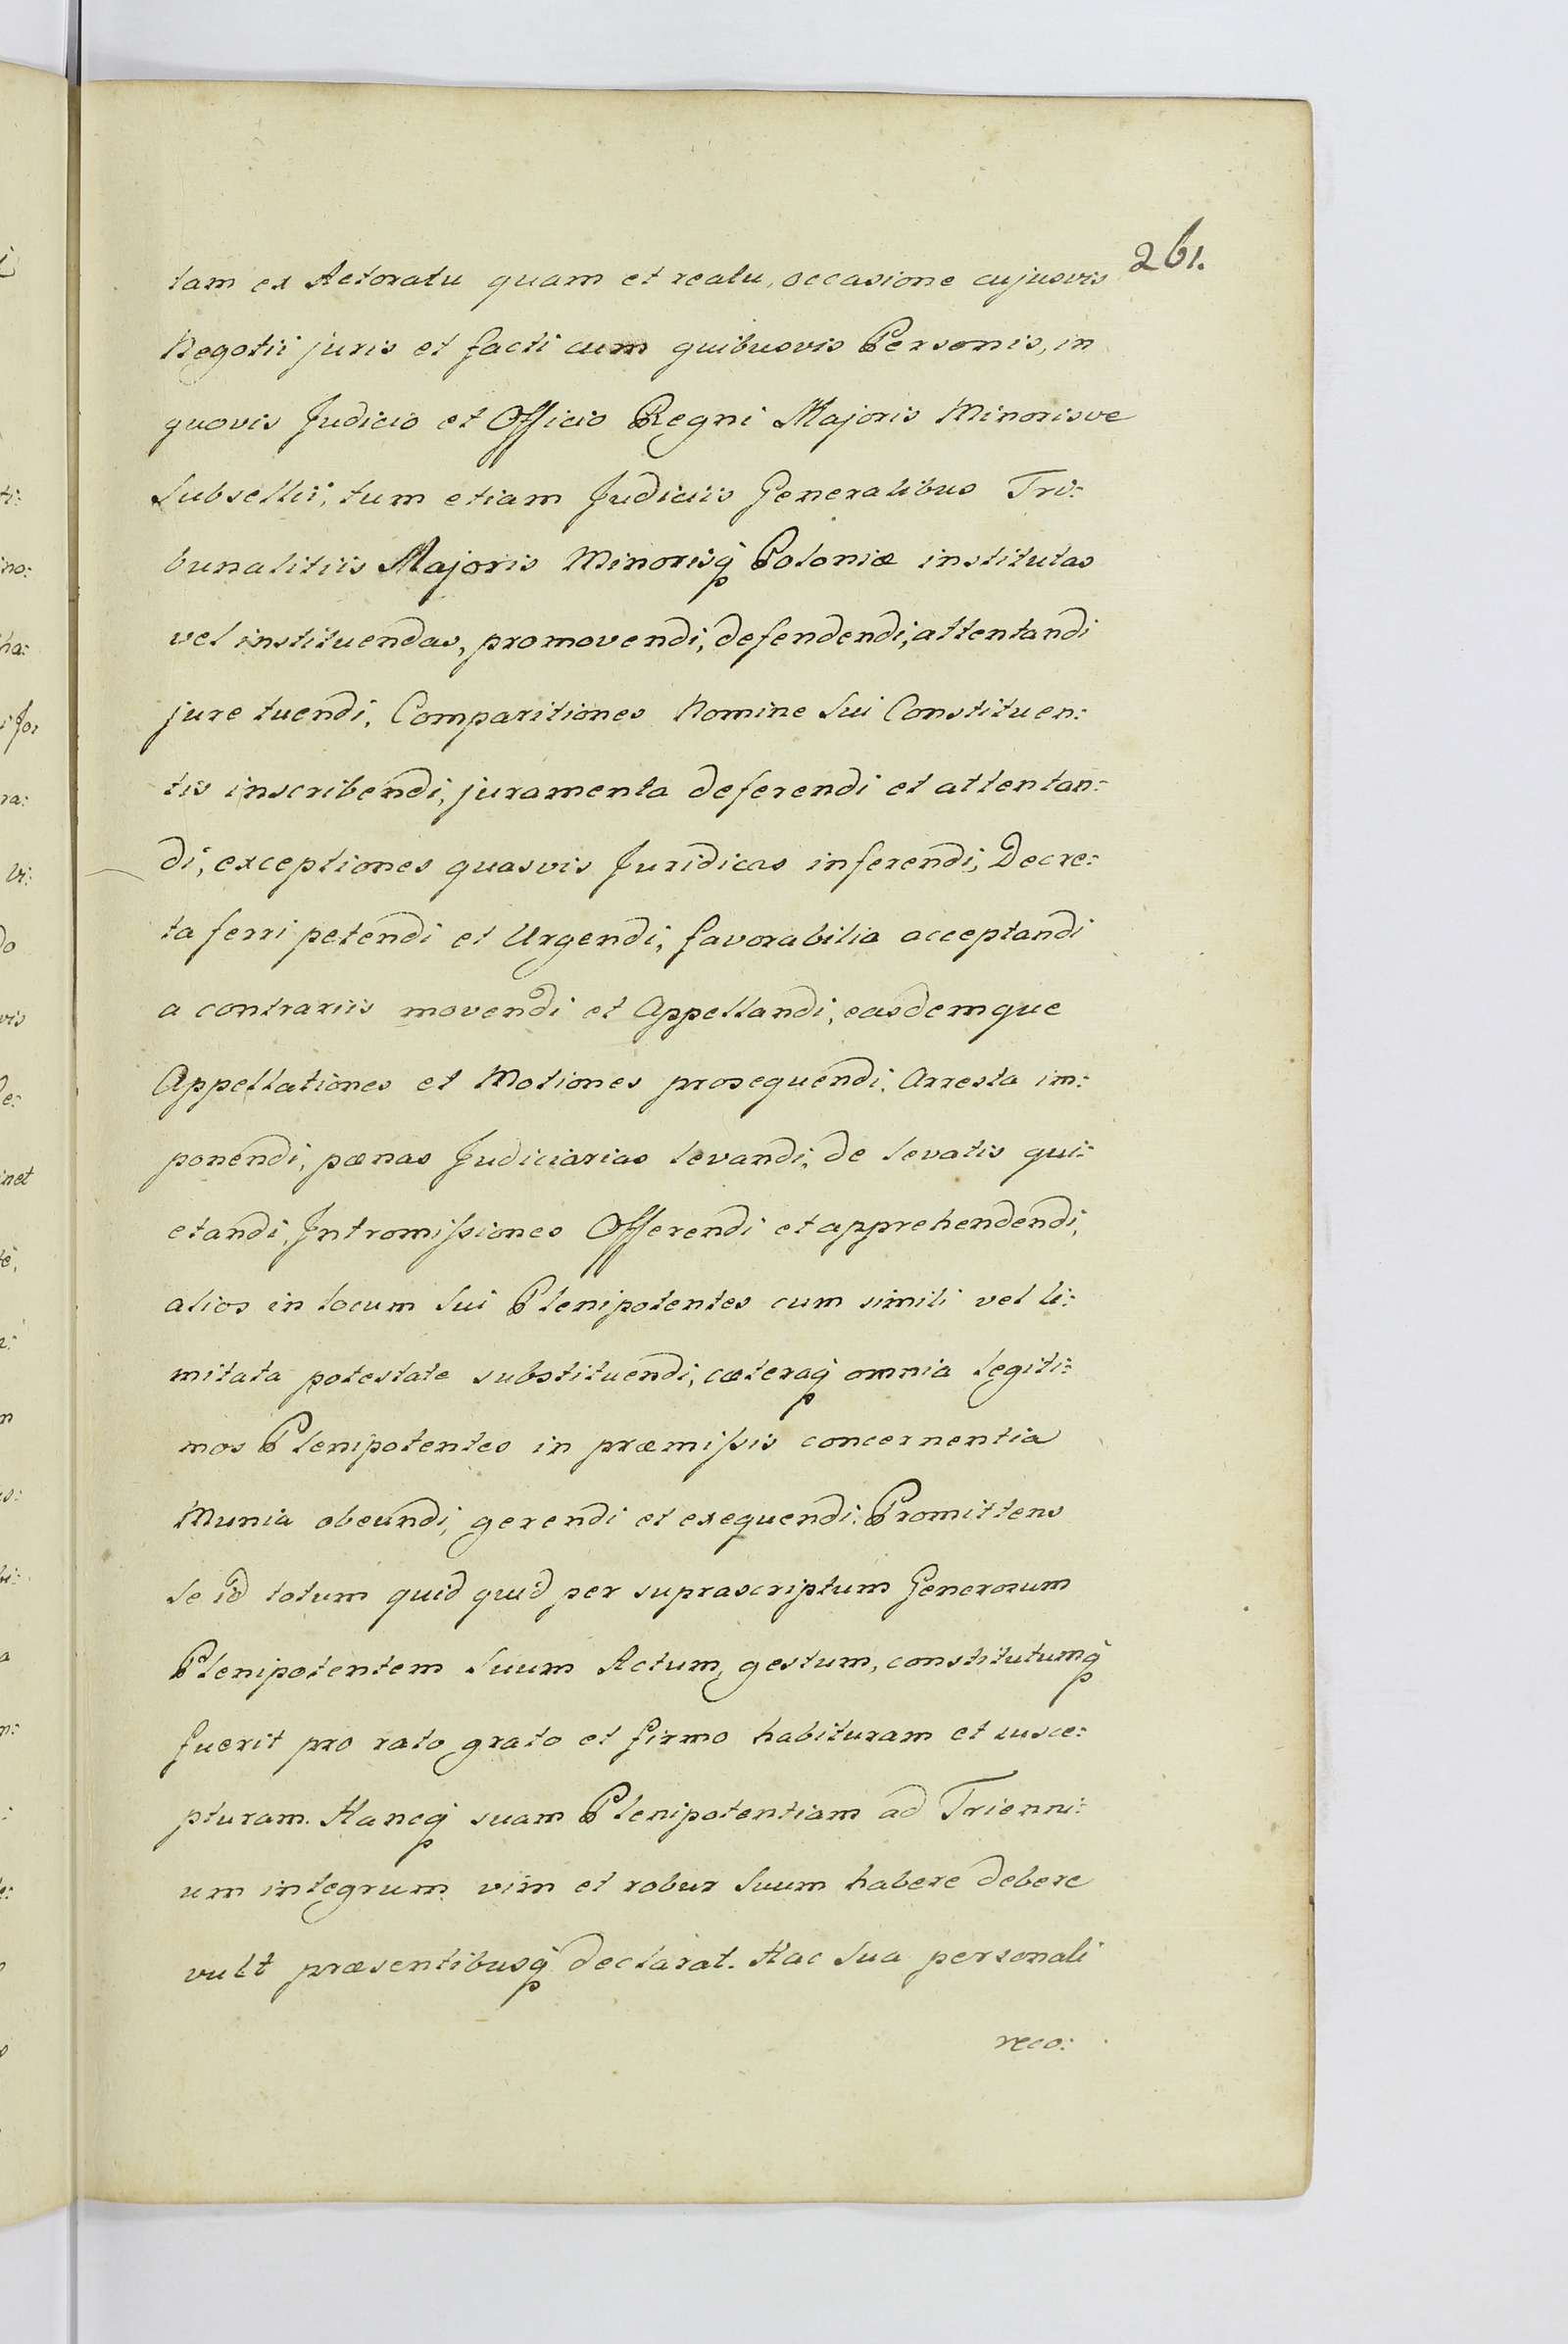 261.
tam ex Actoratu quam et reatu, occasione cujusvis
Negotii juris et facti cum quibusvis Personis, in
quovis Judicio et Officio Regni Majoris Minorisve
Subsellii, tum etiam Judiciis Generalibus Tri:
bunalitiis Majoris Minorisq̃ Poloniæ institutas
vel instituendas, promovendi, defendendi, attentandi
jure tuendi, Comparitiones Nomine Sui Constituen:
tis inscribendi, juramenta deferendi et attentan:
di, exceptiones quasvis Juridicas inferendi, Decre:
ta ferri petendi et Urgendi, favorabilia acceptandi
a contrariis movendi et Appellandi, easdemque
Appellationes et Motiones prosequendi, Arresta im:
ponendi, pœnas Judiciarias levandi, de levatis qui:
etandi, Intromiſsiones Offerendi et apprehendendi,
alios in locum Sui Plenipotentes cum simili vel li:
mitata potestate substituendi, cæteraq̃ omnia legiti:
mos Plenipotentes in præmiſsis concernentia
Munia obeundi, gerendi et exequendi: Promittens
Se id totum quid quid per suprascriptum Generosum
Plenipotentem Suum Actum, gestum, constitutumq̃
fuerit pro rato grato et firmo habituram et susce:
pturam. Hancq̃ suam Plenipotentiam ad Trienni:
um integrum vim et robur Suum habere debere
vult præsentibusq̃ declarat. Hac Sua personali
reco: